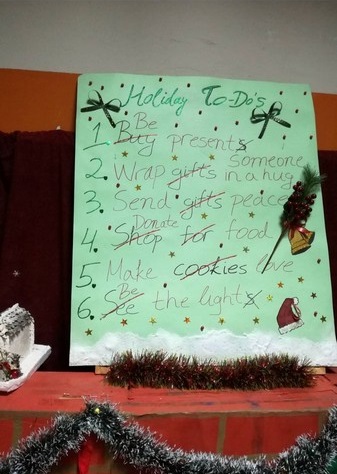 Holiday To-Do's
Be
1. Buy presents
Someone
2. Wrap gifts in a hug
3. Send gifts peace
Donate
4. Shop for food
5. Make cookies love
Be
6. See the lights